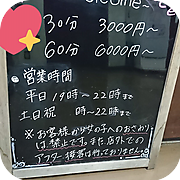 Welcome~
30分 3000円~
60分 6000円~
・営業時間
平日 19時~22時まで
土日祝 時~22時まで
※お客様が女の子へのおさわり
は禁止です。また店外での
アフター接客は行っておりません。